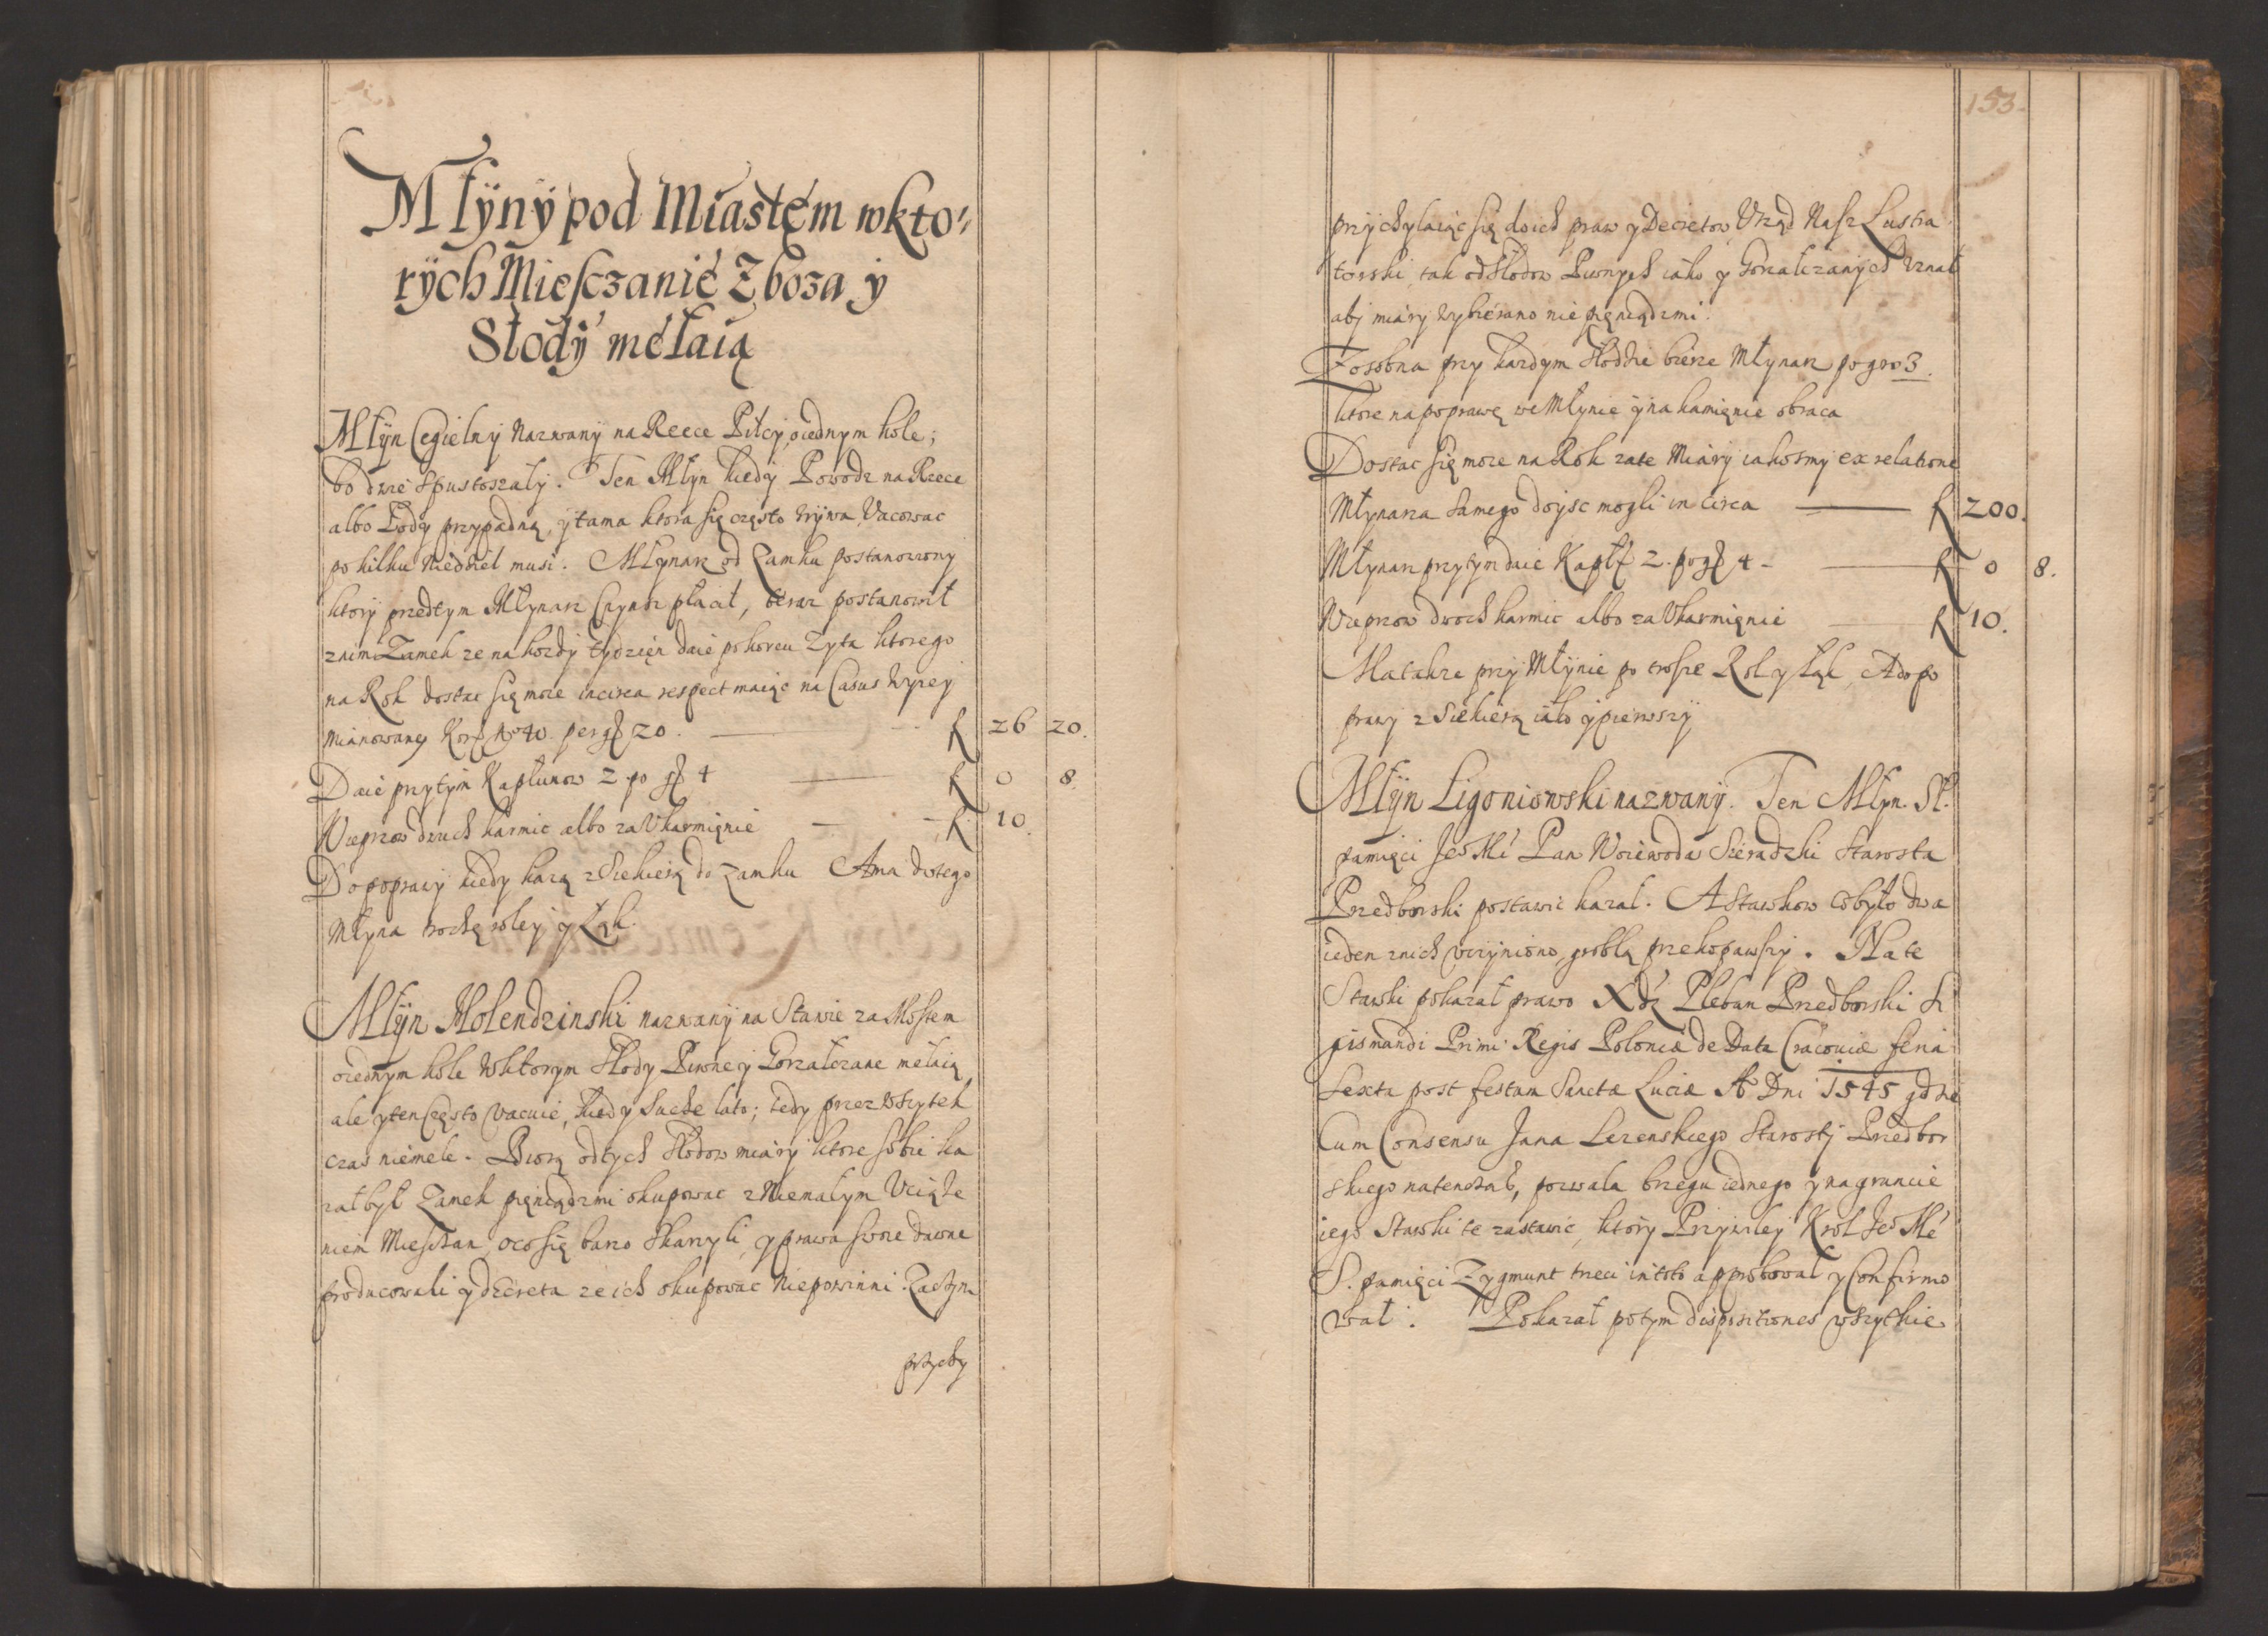 Młyny pod Miastem wkto-
rych Miesczanie Zboza y
Słody mełaią
Młyn Cegielny Nazwany na Rzece Pilcy, oiednym kole;
bo dwie spustoszały. Ten Młyn kiedy Powodz na Rzece
albo Lody przypadną, y tama ktora się często zrywa, Vacowac
po kilku Niedziel musi. Młynarz od Zamku postanowiony
ktory przedtym Młynarz Czynsz płacił, teraz postanowił
znim Zamek ze na kozdy tydzien daie po korcu Zyta ktorego
na Rok dostac się moze incirca respect maiąc na Casus wyzey
mianowany Kor. No 40. per g 20. f 26 20.
Daie przytym Kapłunow 2 po g 4 f 0 8.
Wieprzow dwuch karmic albo za Vkarmienie f 10.
Do poprawy kiedy kazą z Siekierą do Zamku Ama dotego
Młyna trochę roley y Łąk.
Młyn Holendzinski nazwany na Stawie za Mostem
oiednym kole Wktorym Słody Piwne y Gorzałczane mełaią,
ale y ten Często vacuie, kiedy Suche lato; tedy przez Wszytek
czas niemele. Biorą odtych Słodow miary ktore sobie ka
zał był Zamek pieniądzmi okupowac z Niemałym Vciąże
niem Miesczan, oco się barzo Skarzyli, y prawa swoie dawne
producowali y decreta ze ich okupowac Niepowinni. Zaczym
przychy
153.
przychylaiąc się do ich praw y Decretow, Vrząd Nasz Lustra
torski, tak od Słodow Piwnych iako y Gorzałczanych Vznał
aby miary wybierano nie pieniądzmi.
Zosobna przy kazdym Słodzie bierze Młynarz po gro 3.
ktore na poprawę we Młynie y na kamienie obraca
Dostac się moze na Rok zate Miary iakosmy ex relatione
Młynarza samego doysc mogli in circa f 200.
Młynarz przytym daie Kapł 2. po g 4 - f 0 8.
Wieprzow dwoch karmic albo za Vkarmienie f 10.
Ma takze przy Młynie po trosze Rol y Łąk, A do po
prawy z Siekierą iako y pierwszy
Młyn Ligoniowski nazwany. Ten Młyn. St.
pamięci Jeo Mć Pan Woiewoda Sieradzki Starosta
Przedborski postawic kazał. A Stawkow co było dwa
ieden znich vczyniono, groblą przekopawszy. Na te
Stawki pokazał prawo Xdz Pleban Przedborski Si
gismundi Primi Regis Poloniæ de Data Cracoviæ feria
Sexta post festum Sanctæ Luciæ Ao Dni 1545 gdzie
Cum Consensu Jana Lezenskiego Starosty Przedbor
skiego natenczas, pozwala brzegu iednego y na gruncie
iego Stawki te zastawic, ktory Przywiley Krol Jeo Mć
S. pamięci Zygmunt trzeci in toto approbował y Confirmo
wał. Pokazał potym dispositiones wszytkie